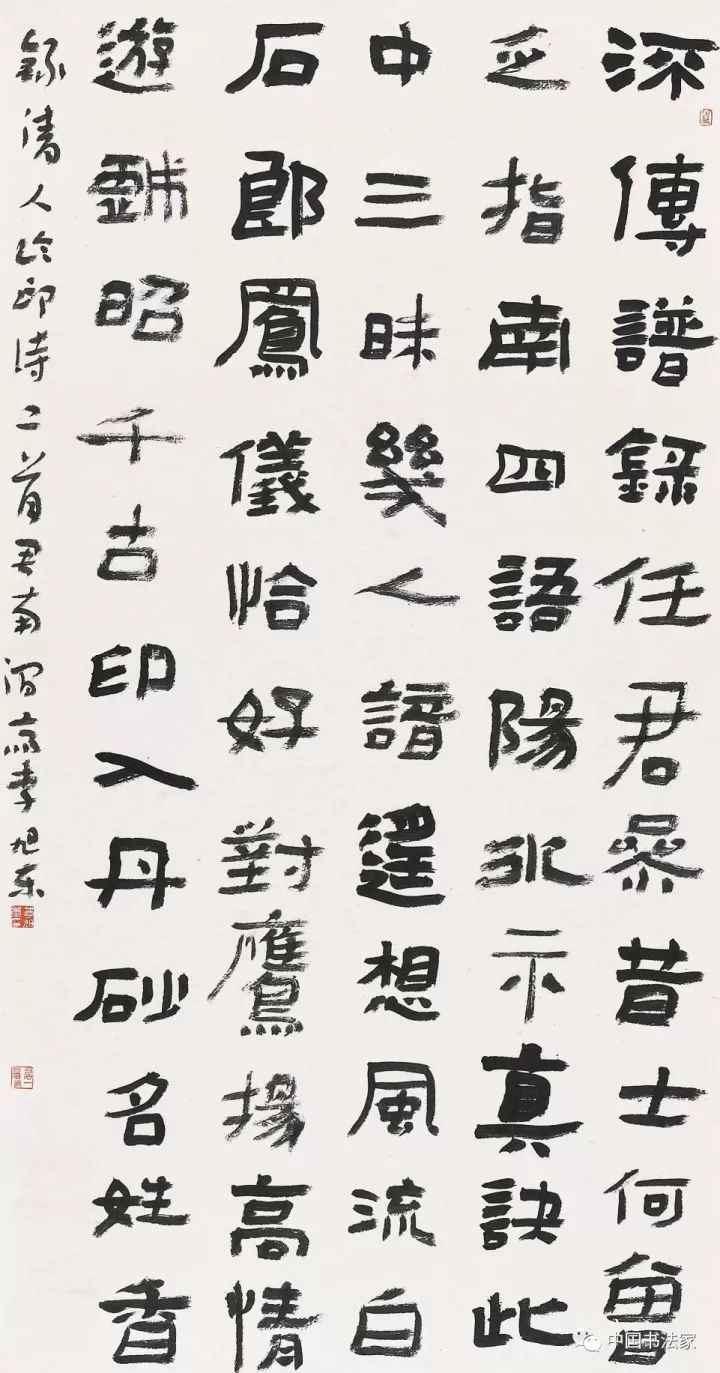 深傳譜錄任君參昔士何曾
乏指南四語陽冰示真訣此
中三昧幾人諳遥想風流白
石郎鳳儀恰好對鷹揚高情
遊黼昭千古印入丹砂名姓香
錄清人論印诗二首李旭东
中国书法家